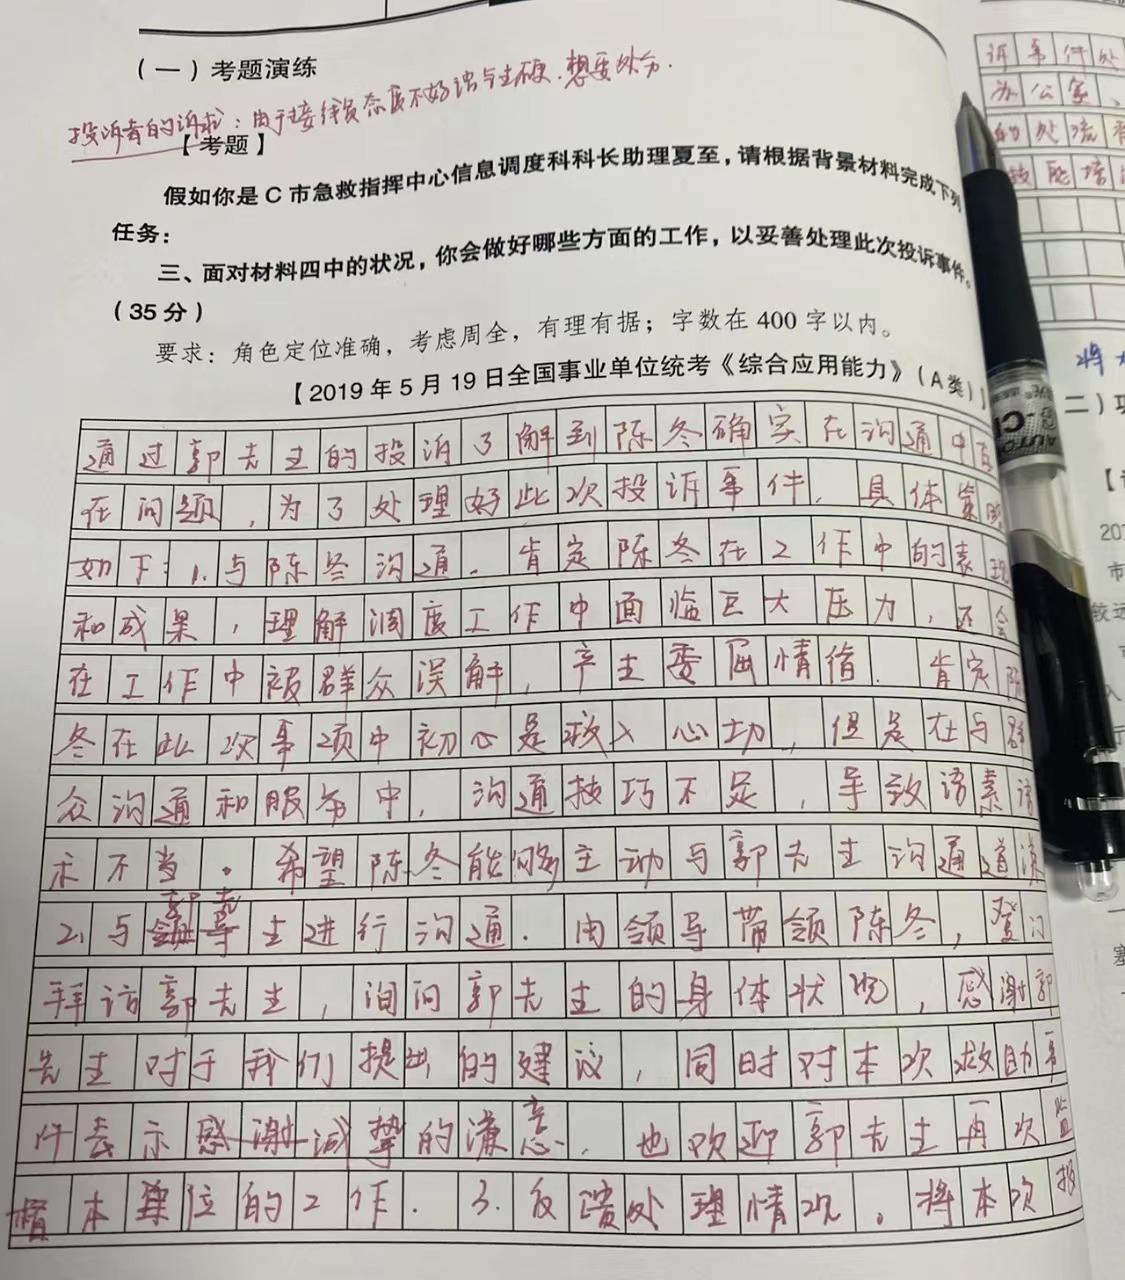 （一）考题演练
投诉者的诉求：由于接线员态度不好语气生硬．想要处分．
【考题】
假如你是 C 市急救指挥中心信息调度科科长助理夏至，请根据背景材料完成下列
任务：
三、面对材料四中的状况，你会做好哪些方面的工作，以妥善处理此次投诉事件。
（35 分）
要求：角色定位准确，考虑周全，有理有据；字数在 400 字以内。
【2019 年 5 月 19 日全国事业单位统考《综合应用能力》（A 类）】
通过郭先生的投诉了解到陈冬确实在沟通中存
在问题，为了处理好此次投诉事件，具体策略
如下：1.与陈冬沟通．肯定陈冬在工作中的表现
和成果，理解调度工作中面临巨大压力，还会
在工作中被群众误解，产生委屈情绪．肯定陈
冬在此次事项中初心是救人心切，但是在与群
众沟通和服务中，沟通技巧不足，导致
示不当。希望陈冬能够主动与郭先生沟通道歉
2.与郭先生进行沟通．由领导带领陈冬，登门
拜访郭先生，询问郭先生的身体状况，感谢郭
先生对于我们提出的建议，同时对本次救助事
件表示诚挚的歉意．也欢迎郭先生再次监
督本单位的工作．3.反馈处理情况。将本次投
诉事件处
办公室、
的处流
技能培
将
二）
【
201
市
较远
入